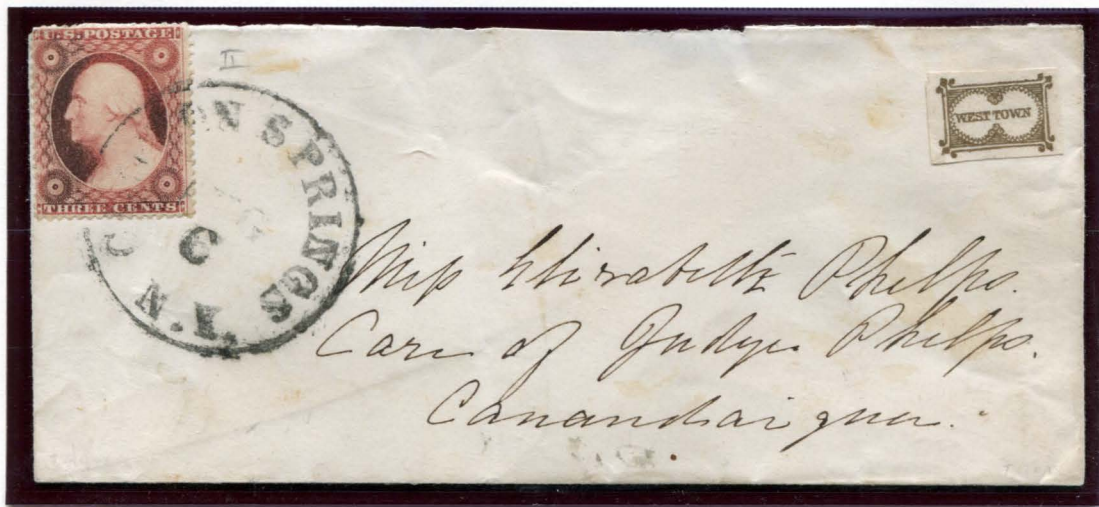 U.S. POSTAGE
THREE CENTS
II
N SPRINGS
N.Y.
6
WEST TOWN
Miss Elizabeth Phelps.
Care of Judge Phelps.
Canandaigua.